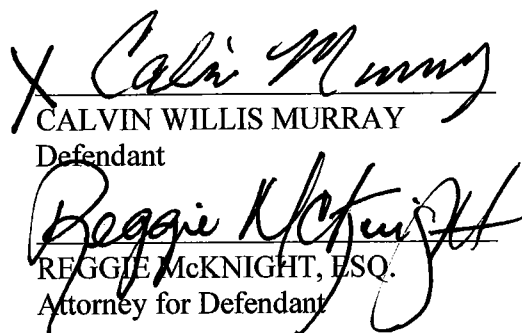 X Calvin Murray
CALVIN WILLIS MURRAY
Defendant
Reggie McKnight
REGGIE McKNIGHT, ESQ.
Attorney for Defendant